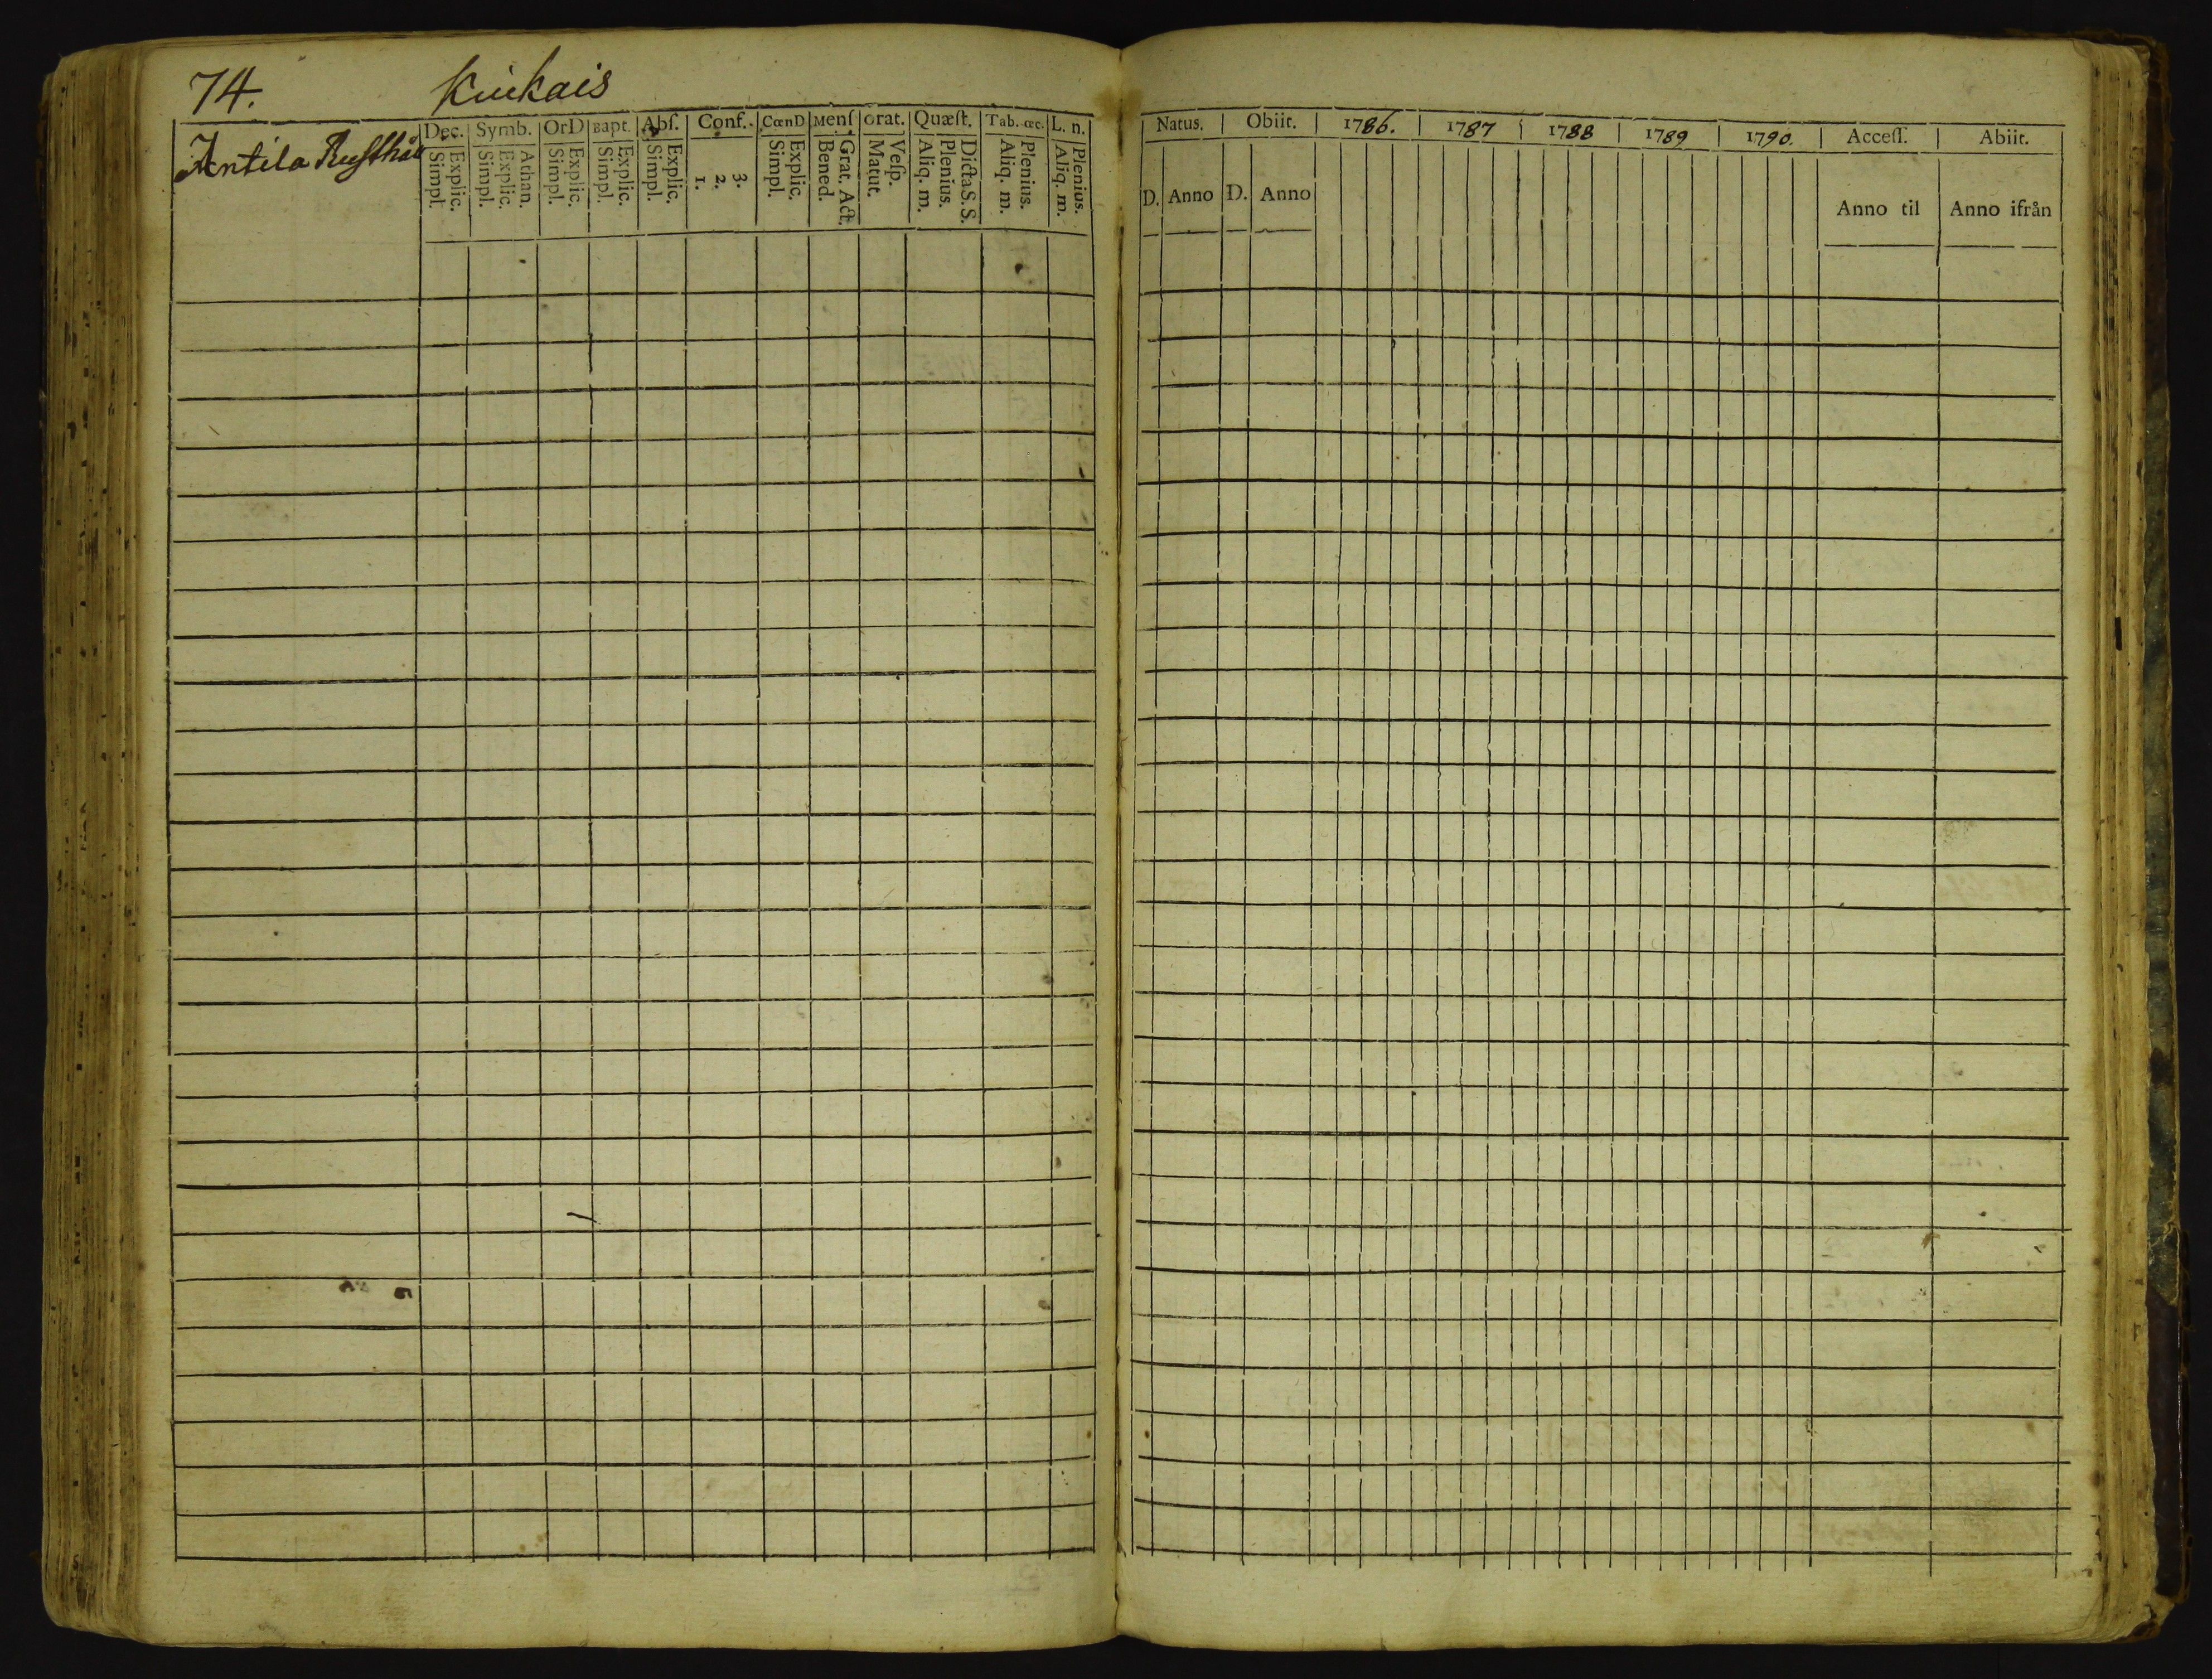 74. Kiukais
Antila Rusthåll
Dec. Symb. OrD Bapt. Abſ. Conf. CœnD Menſ Orat. Quæſt. Tab. œc. L. n.
Explic. Simpl. Athan. Explic. Simpl. Explic. Simpl. Explic. Simpl. Explic. Simpl. 3. 2. 1. Explic. Simpl. Grat. Act. Bened. Veſp. Matut. Dicta S. S. Plenius. Aliq. m. Plenius. Aliq. m. Plenius. Aliq. m.
Natus. Obiit. 1786. 1787 1788 1789 1790. Acceſſ. Abiit.
D. Anno D. Anno Anno til Anno ifrån